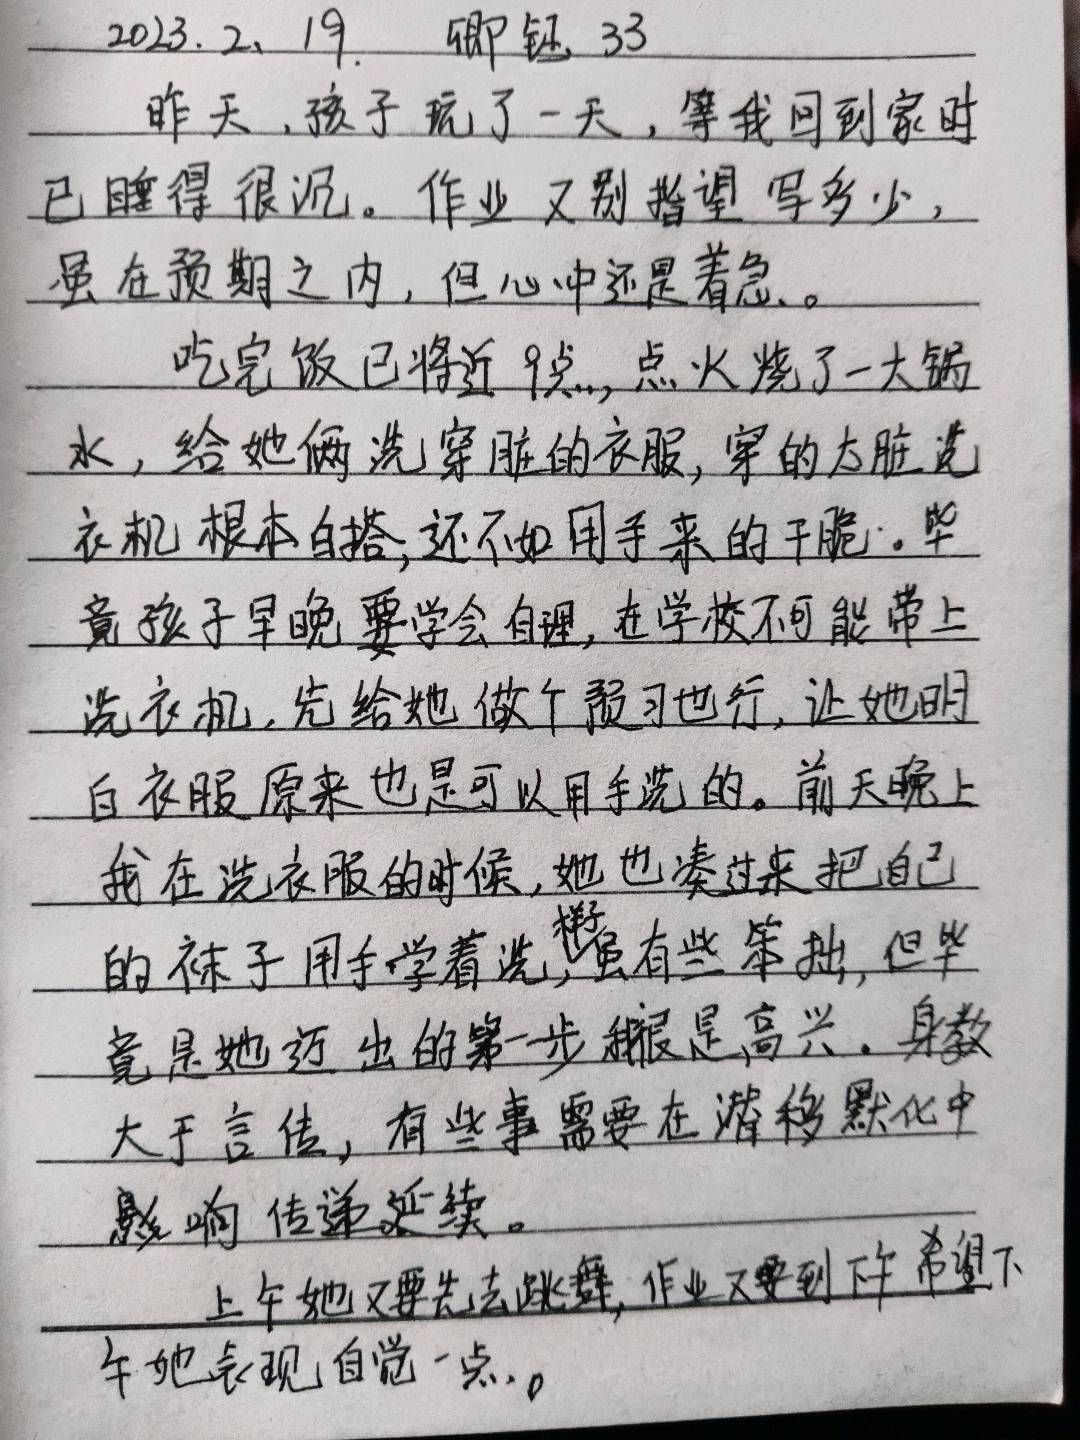 2023.2.19. 卿钰 33
昨天，孩子玩了一天，等我回到家时
已睡得很沉。作业又别指望写多少，
虽在预期之内，但心中还是着急。
吃完饭已将近9点，点火烧了一大锅
水，给她俩洗穿脏的衣服，穿的太脏洗
衣机根本白搭，还不如用手来的干脆。毕
竟孩子早晚要学会自理，在学校不可能带上
洗衣机，先给她做个预习也行，让她明
白衣服原来也是可以用手洗的。前天晚上
我在洗衣服的时候，她也凑过来把自己
的袜子用手学着洗，样子虽有些笨拙，但毕
竟是她迈出的第一步我很是高兴。身教
大于言传，有些事需要在潜移默化中
影响传递延续。
上午她又要先去跳舞，作业又要到下午希望下
午她表现自觉一点。